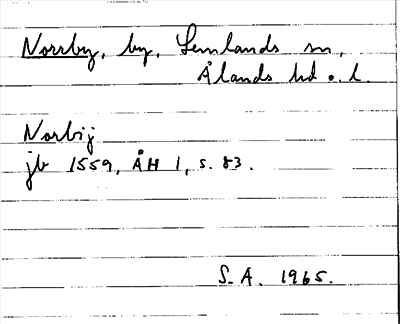 Norrby, by, Lemlands sn,
Ålands hd o. l.
Norbij
jb 1559, ÅH 1, s. 83.
S.A. 1965.